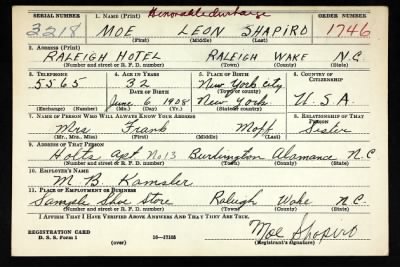 Honorable discharge
SERIAL NUMBER 1. NAME (Print) ORDER NUMBER
3218 MOE LEON SHAPIRO 1746
(First) (Middle) (Last)
2. ADDRESS (Print)
RALEIGH HOTEL RALEIGH WAKE N.C.
(Number and street or R. F. D. number) (Town) (County) (State)
3. TELEPHONE 4. AGE IN YEARS 5. PLACE OF BIRTH 6. COUNTRY OF CITIZENSHIP
5565 32 New York City
DATE OF BIRTH (Town or county)
June 6, 1908 New York U.S.A.
(Exchange) (Number) (Mo.) (Day) (Yr.) (State or country)
7. NAME OF PERSON WHO WILL ALWAYS KNOW YOUR ADDRESS 8. RELATIONSHIP OF THAT PERSON
Mrs Frank Moff Sister
(Mr., Mrs., Miss) (First) (Middle) (Last)
9. ADDRESS OF THAT PERSON
Holts Apt. No 13 Burlington Alamance N C
(Number and street or R. F. D. number) (Town) (County) (State)
10. EMPLOYER'S NAME
M B Kamsler
11. PLACE OF EMPLOYMENT OR BUSINESS
Sample Shoe Store Raleigh Wake N.C.
(Number and street or R. F. D. number) (Town) (County) (State)
I AFFIRM THAT I HAVE VERIFIED ABOVE ANSWERS AND THAT THEY ARE TRUE.
REGISTRATION CARD Moe Shapiro
D. S. S. Form 1 (over) 16—17105 (Registrant's signature)